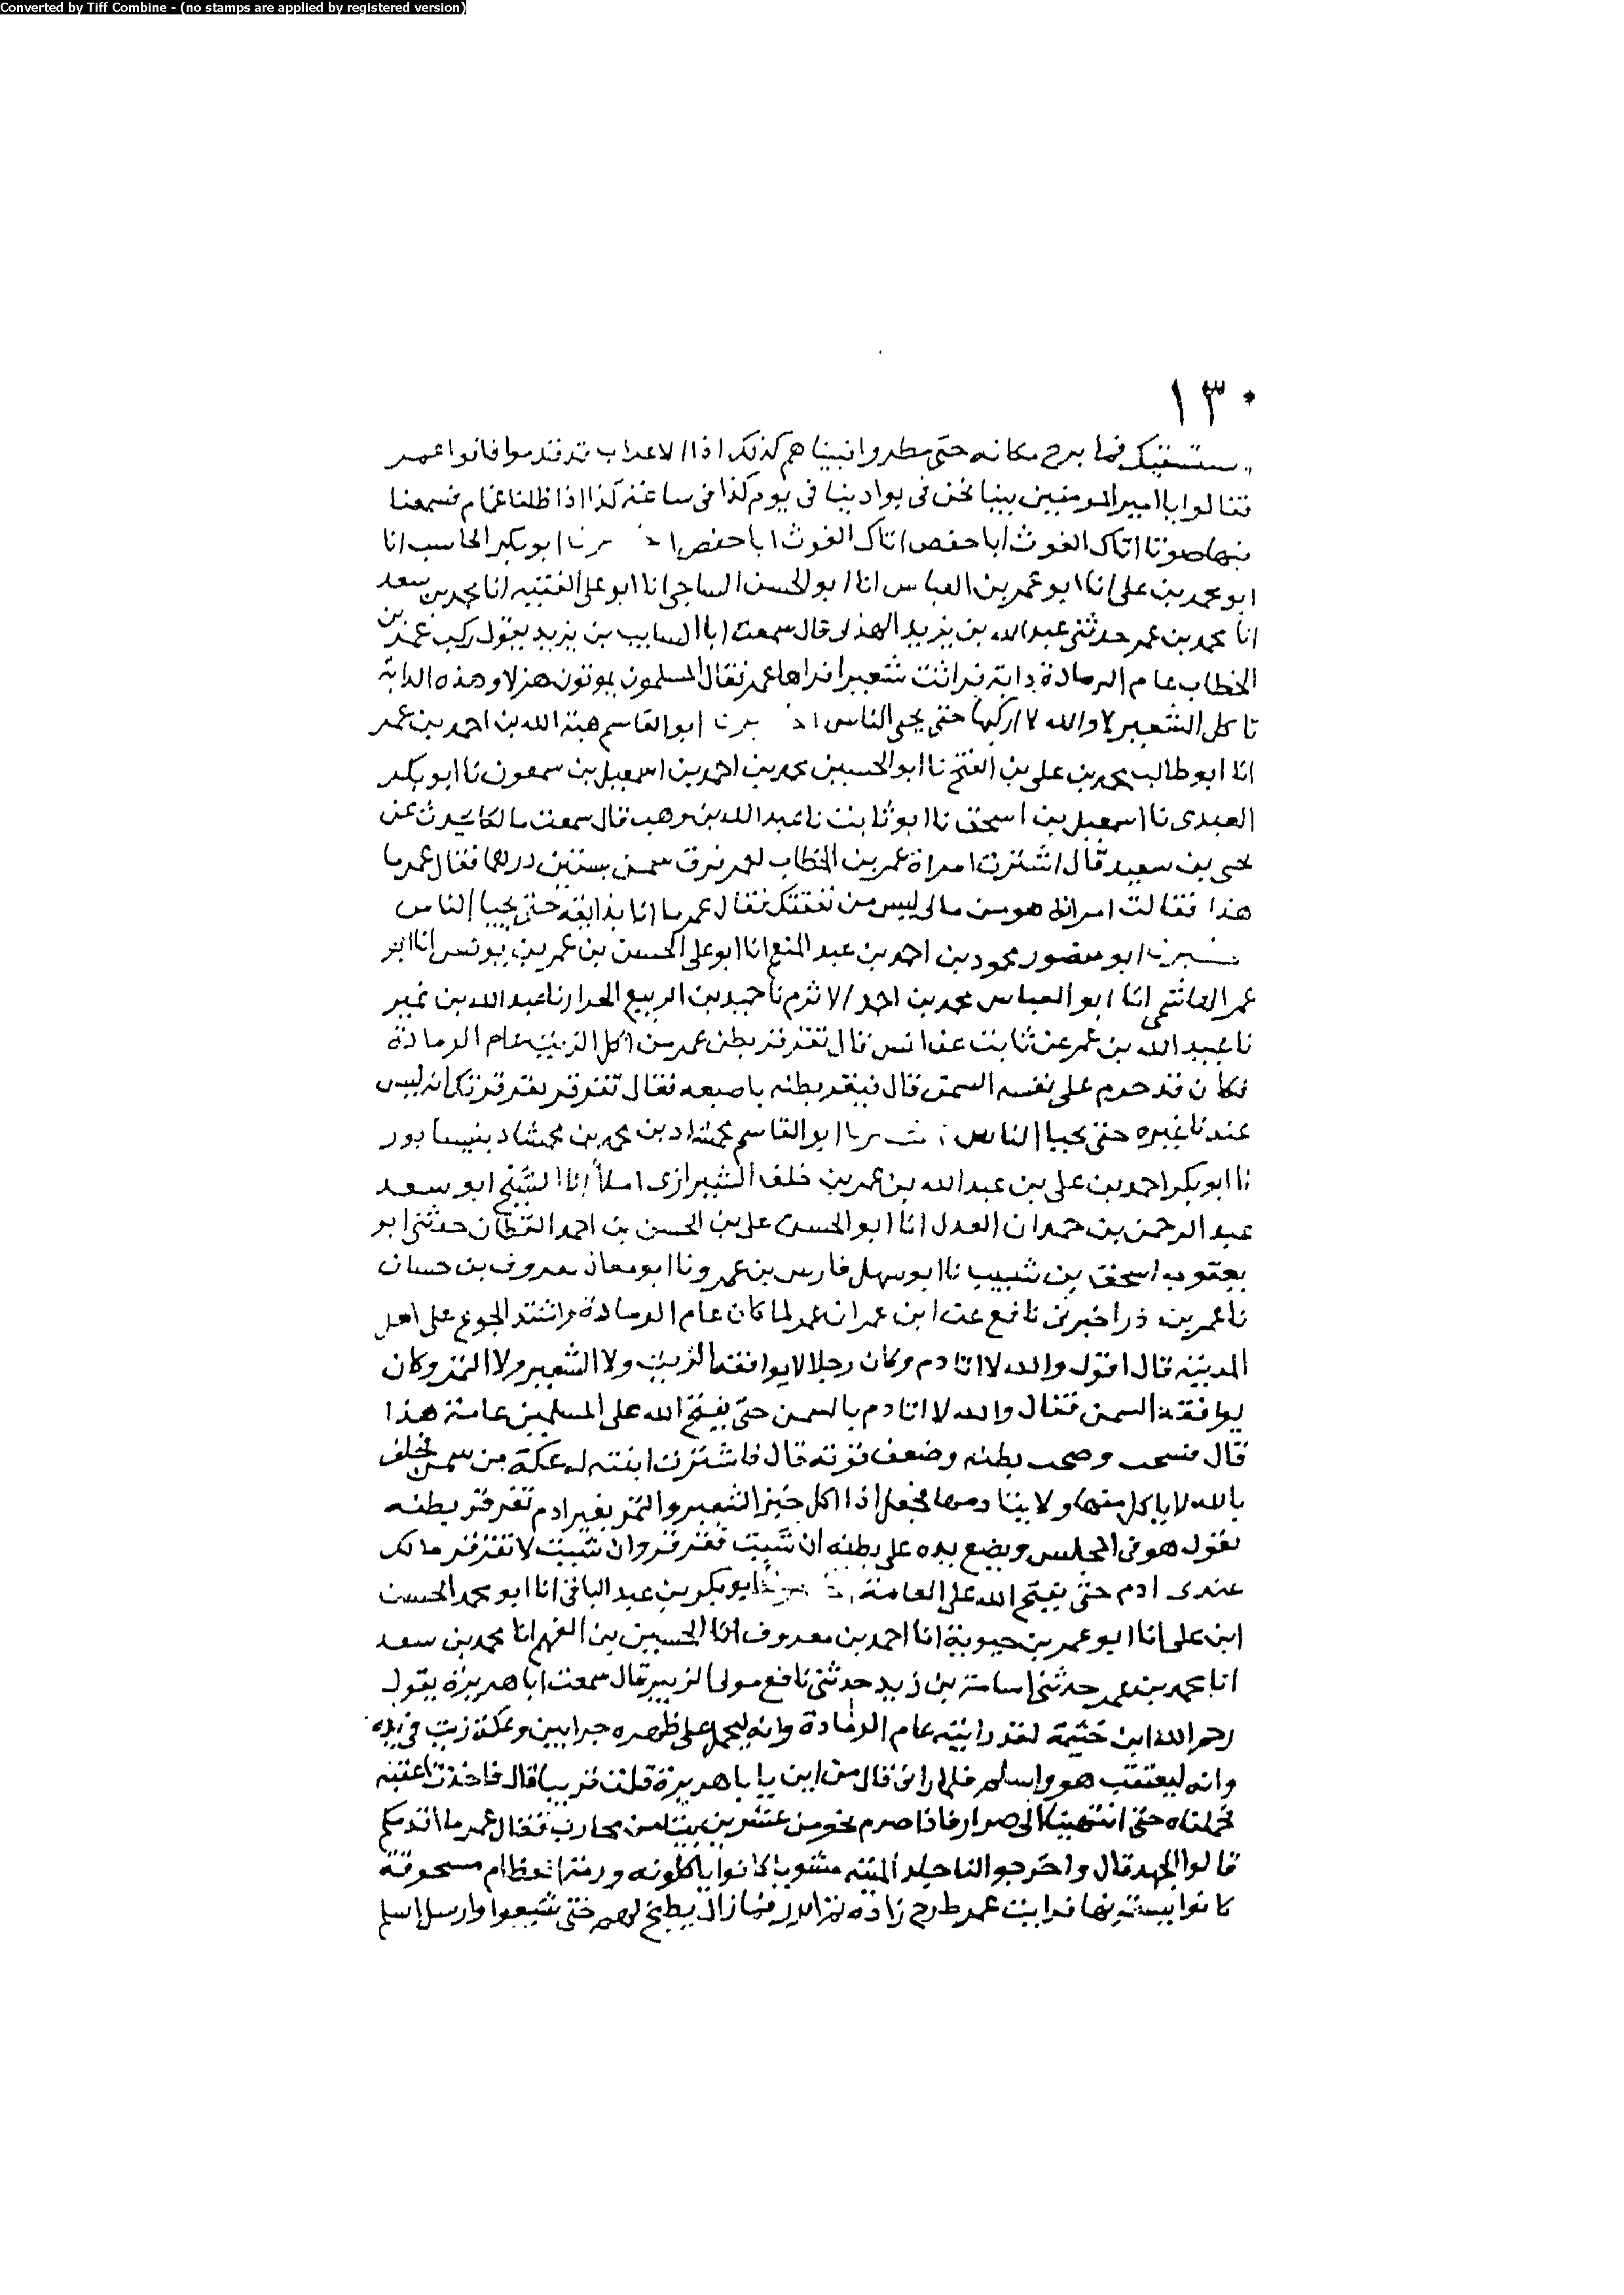 Converted by Tiff Combine - (no stamps are applied by registered version)
١٣٠
ونستسقيك فما برح مكانه حتى مطروا فبينا هم كذلك اذا الاعراب قد قدموا فاتوا عمر
فقالوا يا امير المومنين بينا نحن في بوادينا في يوم كذا في ساعة كذا اذا ظلنا غمام فسمعنا
فيها صوتا اتاك الغوث ابا حفص اتاك الغوث ابا حفص اخبرنا ابو بكر الحاسب انا
ابو محمد بن علي انا ابو عمر بن العباس انا ابو الحسن الساجي انا ابو علي الفقيه انا محمد بن سعد
انا محمد بن عمر حدثني عبد الله بن يزيد الهذلي قال سمعت ابا السايب بن يزيد يقول ركب عمر بن
الخطاب عام الرمادة دابة فراثت شعيرا فراها عمر فقال المسلمون يموتون هزلا وهذه الدابة
تاكل الشعير لا والله لا اركبها حتى يحيى الناس اخبرنا ابو القاسم هبة الله بن احمد بن عمر
انا ابو طالب محمد بن علي بن الفتح نا ابو الحسين محمد بن احمد بن اسمعيل بن سمعون نا ابو بكر
العبدي نا اسمعيل بن اسحق نا ابو ثابت نا عبد الله بن وهب قال سمعت مالكا يحدث عن
يحيى بن سعيد قال اشترت امراة عمر بن الخطاب لعمر فرق سمن بستين درهما فقال عمر ما
هذا فقالت امراته هو من مالي ليس من نفقتك فقال عمر ما انا بذايقه حتى يحيا الناس
اخبرنا ابو منصور محمود بن احمد بن عبد المنعم انا ابو علي الحسن بن عمر بن يونس انا ابو
عمر الهاشمي انا ابو العباس محمد بن احمد الاثرم نا حميد بن الربيع الخزاز نا عبد الله بن نمير
نا عبيد الله بن عمر عن ثابت عن انس قال تقرقر بطن عمر من اكل الزيت عام الرمادة
وكان قد حرم على نفسه السمن قال فنقر بطنه باصبعه فقال تقرقر تقرقرك انه ليس
عندنا غيره حتى يحيا الناس اخبرنا ابو القاسم محمشاد بن محمد بن محمشاد بنيسابور
نا ابو بكر احمد بن علي بن عبد الله بن عمر بن خلف الشيرازي املأ انا الشيخ ابو سعد
عبد الرحمن بن حمدان العدل انا ابو الحسن علي بن الحسن بن احمد القطان حدثني ابو
يعقوب اسحق بن شبيب نا ابو سهل فارس بن عمرو نا ابو معاذ معروف بن حسان
نا عمر بن ذر اخبرني نافع عن ابن عمر ان عمر لما كان عام الرمادة واشتد الجوع على اهل
المدينة قال اقول والله لا اتادم وكان رجلا لا يوافقه الزيت ولا الشعير ولا التمر وكان
يوافقه السمن فقال والله لا اتادم بالسمن حتى يفتح الله على المسلمين عامته هذا
قال وضعف قوته قال فاشترت ابنته له عكة من سمن فحلف
بالله لا ياكل منها ولا يتادمها فجعل اذا اكل خبز الشعير والتمر بغير ادم تقرقر بطنه
يقول هو في المجلس ويضع يده على بطنه ان شيت تقرقر وان شيت لا تقرقر ما لك
عندي ادم حتى يفتح الله على العامة اخبرنا ابو بكر بن عبد الباقي انا ابو محمد الحسن
ابن علي انا ابو عمر بن حيوية انا احمد بن معروف انا الحسين بن الفهم انا محمد بن سعد
انا محمد بن عمر حدثني اسامة بن زيد حدثني نافع مولى الزبير قال سمعت ابا هريرة يقول
رحم الله ابن حنتمة لقد رايته عام الرمادة وانه ليحمل على ظهره جرابين وعكة زيت في يده
وانه ليعتقب هو واسلم فلما راني قال من اين يا با هريرة قلت قريبا قال فاخذت اعقبه
فحملناه حتى انتهينا الى صرار فاذا صرم نحو من عشرين بيتا من محارب فقال عمر ما اقدمكم
قالوا الجهد قال واخرجوا لنا جلد الميتة مشويا كانوا ياكلونه ورمة العظام مسحوقة
كانوا يستفونها فرايت عمر طرح رداه ثم اتزر فما زال يطبخ لهم حتى شبعوا وارسل اسلم